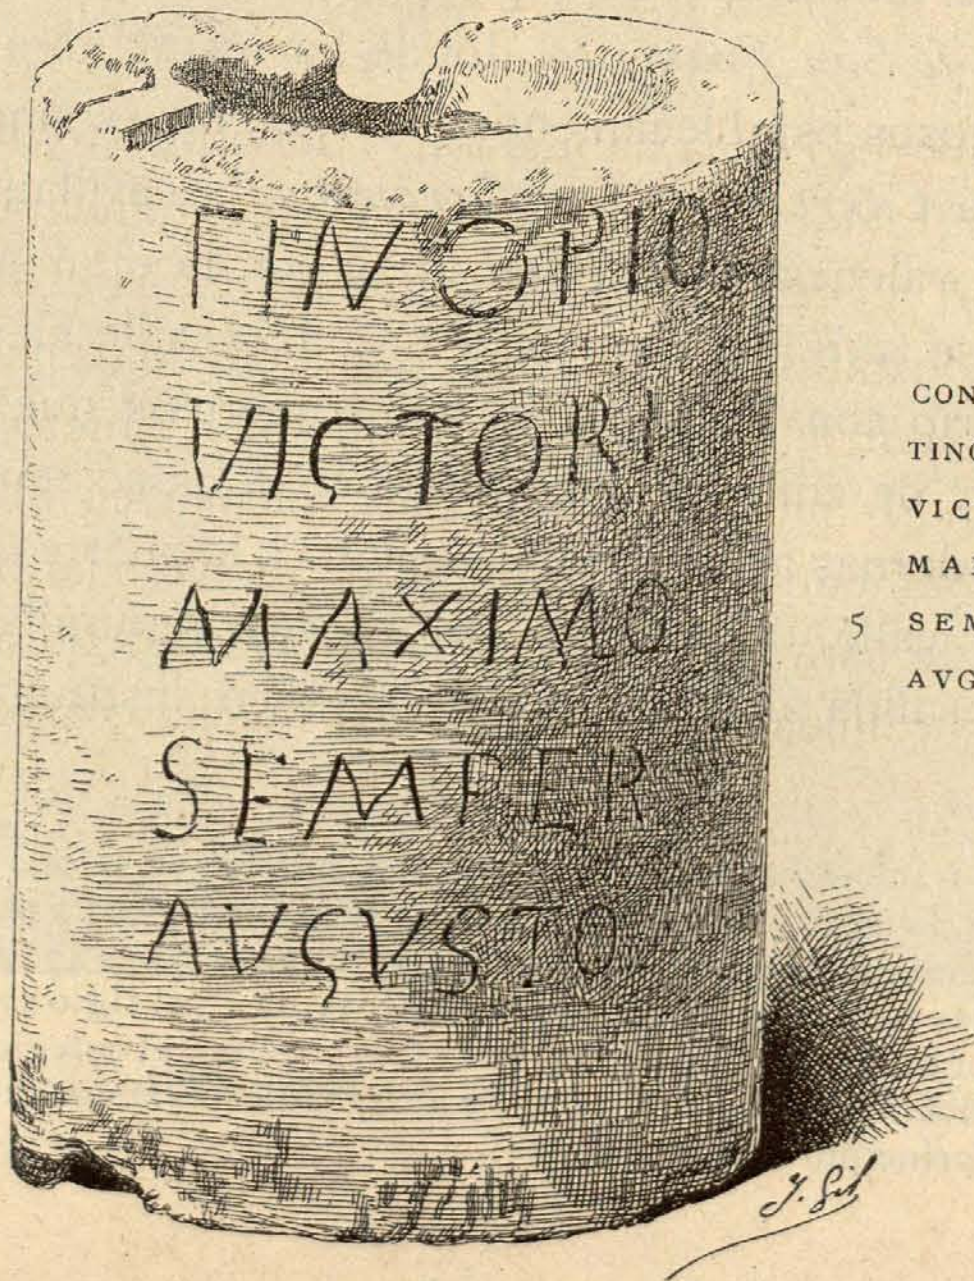 TINO PIO
VICTORI
MAXIMO
SEMPER
AVGVSTO
CON
TINO
VIC
MAX
5 SEM
AVG
J. Gil